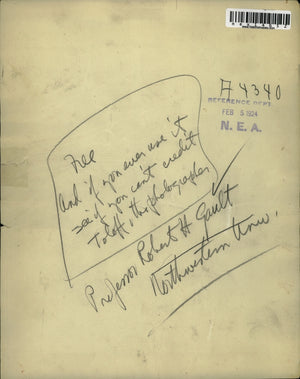 A4340
REFERENCE DEPT.
FEB 5 1924
N. E. A.
Free
And if you ever use it
see if you can't credit
Toloff, the photographer
Professor Robert H Gault
Northwestern Univ.